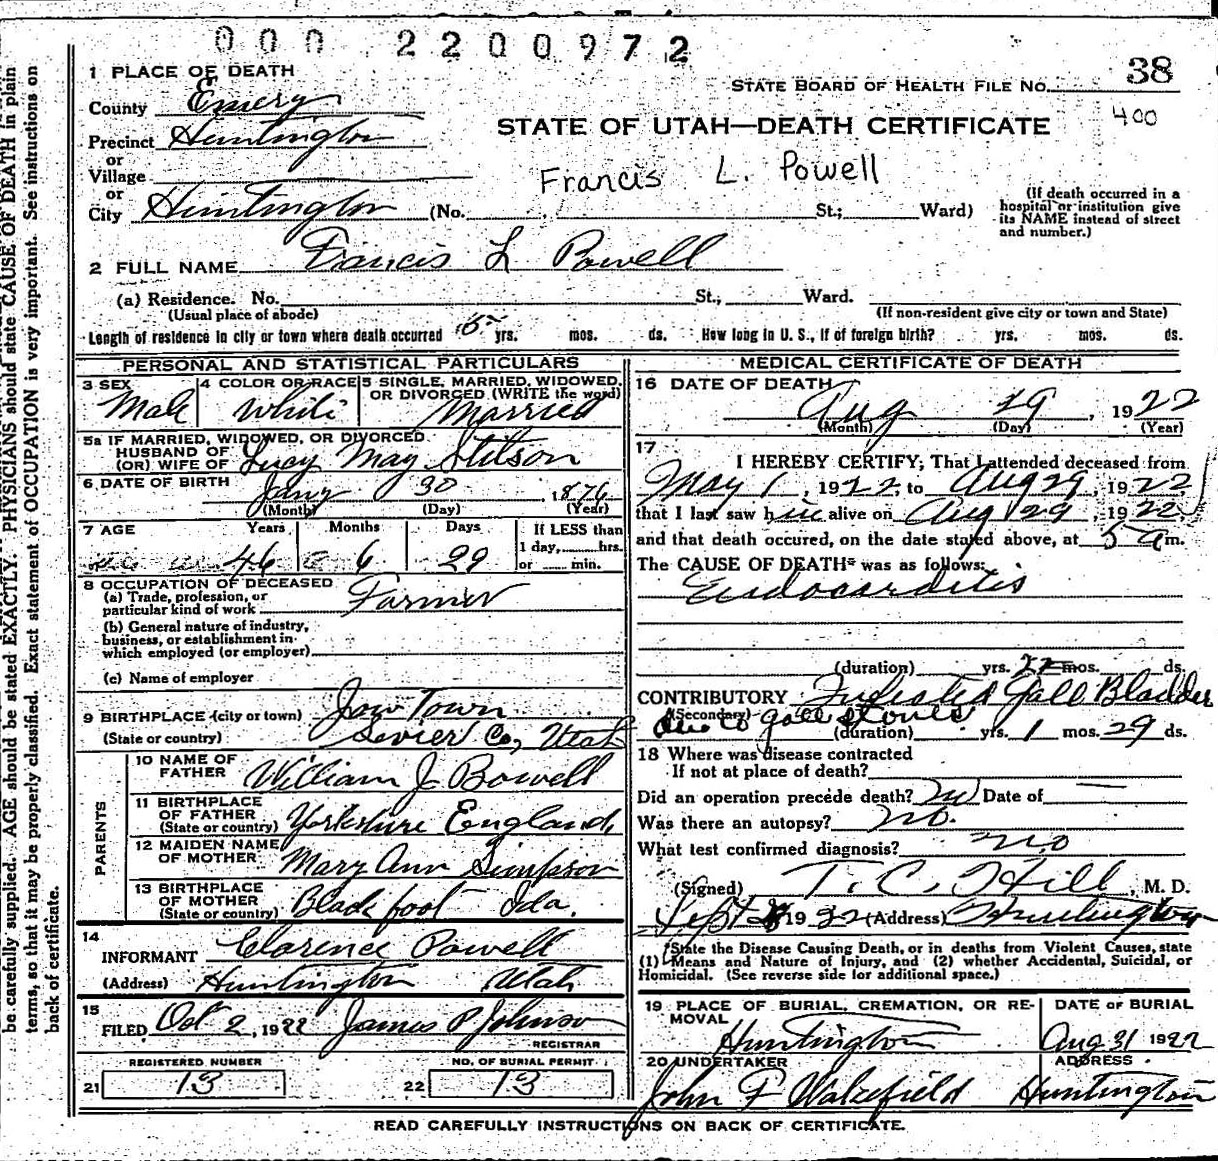 000 2200972
1 PLACE OF DEATH
STATE BOARD OF HEALTH FILE No. 38
County Emery
400
STATE OF UTAH—DEATH CERTIFICATE
Precinct Huntington
or
Village
Francis L. Powell
or
City Huntington (No. St.; Ward)
(If death occurred in a hospital or institution give its NAME instead of street and number.)
2 FULL NAME Francis L Powell
(a) Residence. No. St., Ward.
(Usual place of abode) (If non-resident give city or town and State)
Length of residence in city or town where death occurred yrs. mos. ds. How long in U. S., if of foreign birth? yrs. mos. ds.
PERSONAL AND STATISTICAL PARTICULARS
3 SEX Male
4 COLOR OR RACE White
5 SINGLE, MARRIED, WIDOWED, OR DIVORCED (WRITE the word) Married
5a IF MARRIED, WIDOWED, OR DIVORCED
HUSBAND OF
(OR) WIFE OF Lucy May Stilson
6 DATE OF BIRTH Jany 30, 1876
(Month) (Day) (Year)
7 AGE Years Months Days If LESS than
46 6 29 1 day, hrs.
or min.
8 OCCUPATION OF DECEASED
(a) Trade, profession, or
particular kind of work Farmer
(b) General nature of industry,
business, or establishment in
which employed (or employer)
(c) Name of employer
9 BIRTHPLACE (city or town) Jow Town
(State or country) Sevier Co, Utah
PARENTS
10 NAME OF
FATHER William J Bowell
11 BIRTHPLACE
OF FATHER
(State or country) Yorkshire England,
12 MAIDEN NAME
OF MOTHER Mary Ann Simpson
13 BIRTHPLACE
OF MOTHER
(State or country) Blackfoot Ida.
14
INFORMANT Clarence Powell
(Address) Huntington Utah
15
FILED Oct 2, 1922 James P Johnson
REGISTRAR
REGISTERED NUMBER NO. OF BURIAL PERMIT
21 13 22 13
MEDICAL CERTIFICATE OF DEATH
16 DATE OF DEATH
Aug 29, 1922
(Month) (Day) (Year)
17
I HEREBY CERTIFY, That I attended deceased from
May 1, 1922, to Aug 29, 1922
that I last saw him alive on Aug 29, 1922
and that death occured, on the date stated above, at 5 a m.
The CAUSE OF DEATH* was as follows:
Endocarditis
(duration) yrs. mos. ds.
CONTRIBUTORY Infected Gall Bladder
(Secondary) due to gall stones
(duration) yrs. 1 mos. 29 ds.
18 Where was disease contracted
If not at place of death?
Did an operation precede death? no Date of —
Was there an autopsy? no.
What test confirmed diagnosis? no
(Signed) T. C. Hill, M. D.
Sept 1922 (Address) Huntington
*State the Disease Causing Death, or in deaths from Violent Causes, state
(1) Means and Nature of Injury, and (2) whether Accidental, Suicidal, or
Homicidal. (See reverse side for additional space.)
19 PLACE OF BURIAL, CREMATION, OR REMOVAL
Huntington
DATE OF BURIAL
Aug 31 1922
20 UNDERTAKER ADDRESS
John F Wakefield Huntington
READ CAREFULLY INSTRUCTIONS ON BACK OF CERTIFICATE.
be carefully supplied. AGE should be stated EXACTLY. PHYSICIANS should state CAUSE OF DEATH in plain
terms, so that it may be properly classified. Exact statement of OCCUPATION is very important. See instructions on
back of certificate.